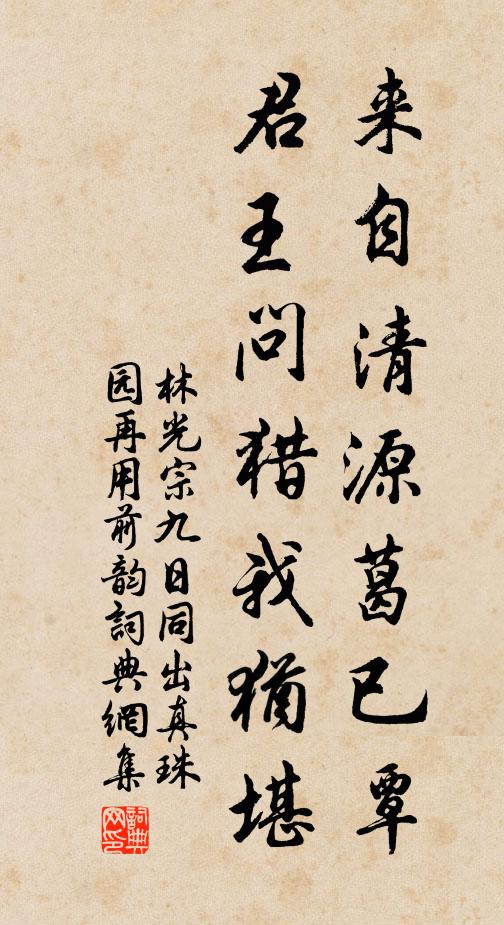 来自清源葛已覃
君王问猎我犹堪
林光宗九日同出真珠
园再用前韵詞典網集
詞典
网印